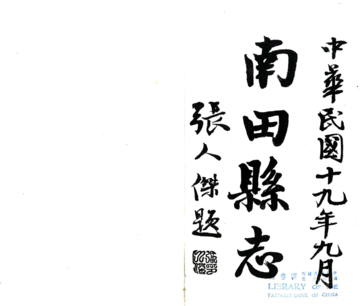 中華民國十九年九月
南田縣志
張人傑題
LIBRARY OF THE